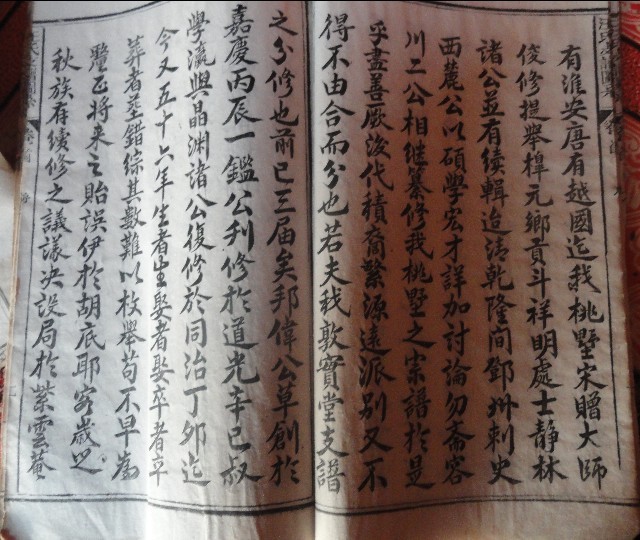 有淮安唐有越國迄我桃墅宋贈大師
俊修提舉椁元鄉貢斗祥明處士靜林
諸公並有續輯迨清乾隆間鄧州刺史
西麓公以碩學宏才詳加討論勿齋容
川二公相繼纂修我桃墅之宗譜於是
乎盡善厥後代積裔繁源遠派別又不
得不由合而分也若夫我敦實堂支譜
之分修也前已三届矣邦偉公草創於
嘉慶丙辰一鑑公刋修於道光辛巳叔
學瀛與晶淵諸公復修於同治丁夘迄
今又五十六年生者生娶者娶卒者卒
葬者葬錯綜其數難以枚舉苟不早為
釐正將来之貽誤伊於胡底耶客歲之
秋族存續修之議議决設局於紫雲菴